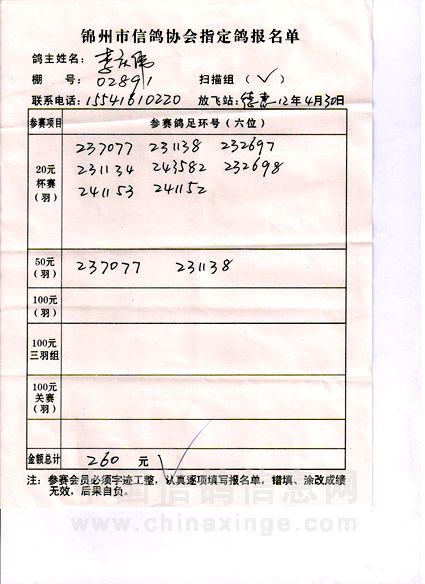 锦州市信鸽协会指定鸽报名单
鸽主姓名: 李庆伟
棚 号: 02891 扫描组 (√)
联系电话: 15541610220 放飞站: 德惠 12年4月30日
参赛项目 参赛鸽足环号(六位)
20元
杯赛
(羽)
237077 231138 232697
231134 243582 232698
241153 241152
50元
(羽)
237077 231138
100元
(羽)
100元
三羽组
100元
关赛
(羽)
金额总计 260 元
注: 参赛会员必须字迹工整, 认真逐项填写报名单, 错填、涂改成绩
无效, 后果自负。
中国信鸽信息网
www.chinaxinge.com